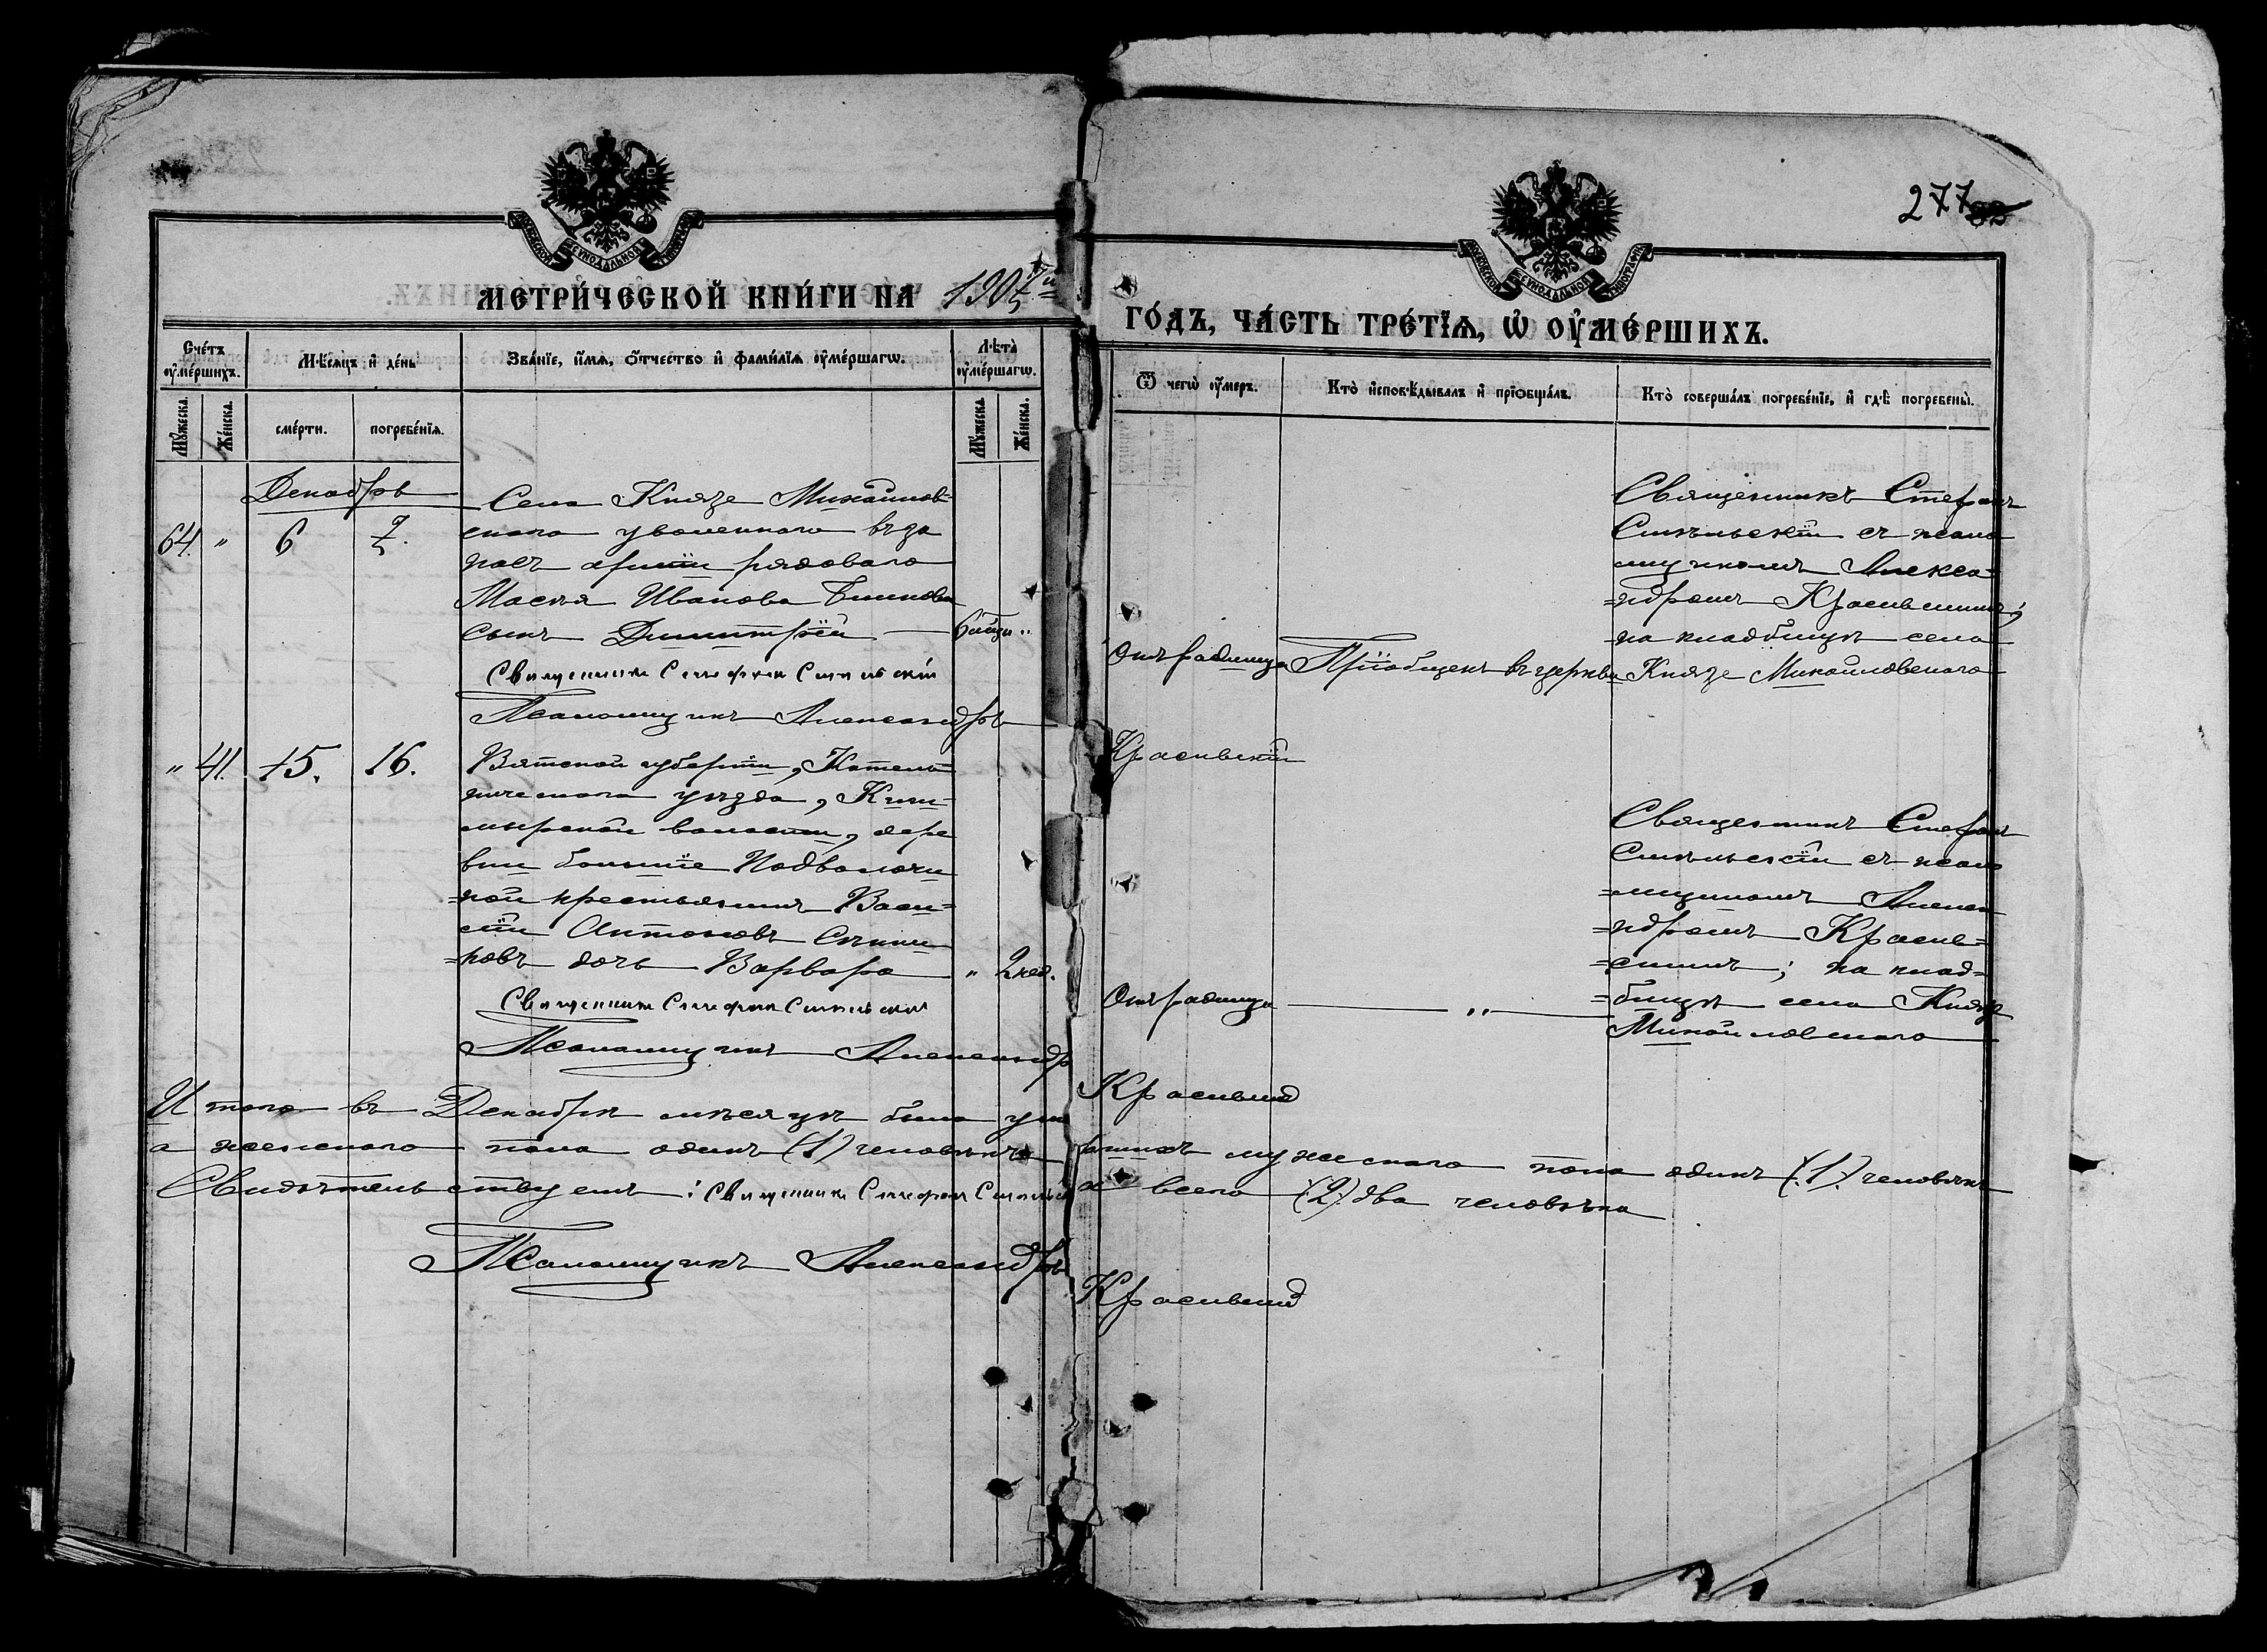 277
МЕТРИ́ЧЕСКОЙ КНИ́ГИ НА 1907й
ГО́ДЪ, ЧА́СТЬ ТРЕ́ТЇѦ, Ѡ҆ ОУ҆МЕ́РШИХЪ.
Сче́тъ оу҆ме́ршихъ.
Мꙋ́жеска.
Же́нска.
Мѣ́сяцъ и҆ де́нь
сме́рти.
погребе́нїя.
Зва́нїе, и҆́мя, ѻ҆́тчество и҆ фами́лїя оу҆ме́ршагѡ.
Лѣ́та оу҆ме́ршагѡ.
Мꙋ́жеска.
Же́нска.
Ѿ чегѡ̀ оу҆́меръ.
Кто̀ и҆сповѣ́дывалъ и҆ прїѡбща́лъ.
Кто̀ соверша́лъ погребе́нїе, и҆ гдѣ̀ погребены̀.
Декабрь
64. " 6 7.
Села Князе Михайлов-
скаго уволеннаго въ за
пасъ арміи рядоваго
Иванова
сынъ Димитрій —
Священникъ Стефанъ
Псаломщикъ Александръ
Красивскій
Отъ родимца
Пріобщенъ въ церкви
Священникъ Стефанъ
съ псало
мщикомъ Алекса-
=ндромъ
=на кладбищѣ села
Князе Михайловскаго
" 41. 15. 16.
Вятской губерніи, Котель
ническаго уѣзда,
волости, дере
вни большіе
=ной крестьянинъ Васи=
лій Антоновъ
=ковъ дочь Варвара " 2 нед.
Священникъ Стефанъ
Псаломщикъ Александръ
Отъ родимца — " —
Священникъ Стефанъ
съ псало
=мщикомъ Алекса
=ндромъ Красив=
=скимъ; на клад=
=бищѣ села Князе
Михайловскаго
Итого въ Декабрѣ мѣсяцѣ было уме
ршихъ мужескаго пола одинъ (1) человѣкъ
а женскаго пола одинъ (1) человѣкъ
а всего (2) два человѣка
Свидѣтельствуемъ: Священникъ Стефанъ
Псаломщикъ Александръ